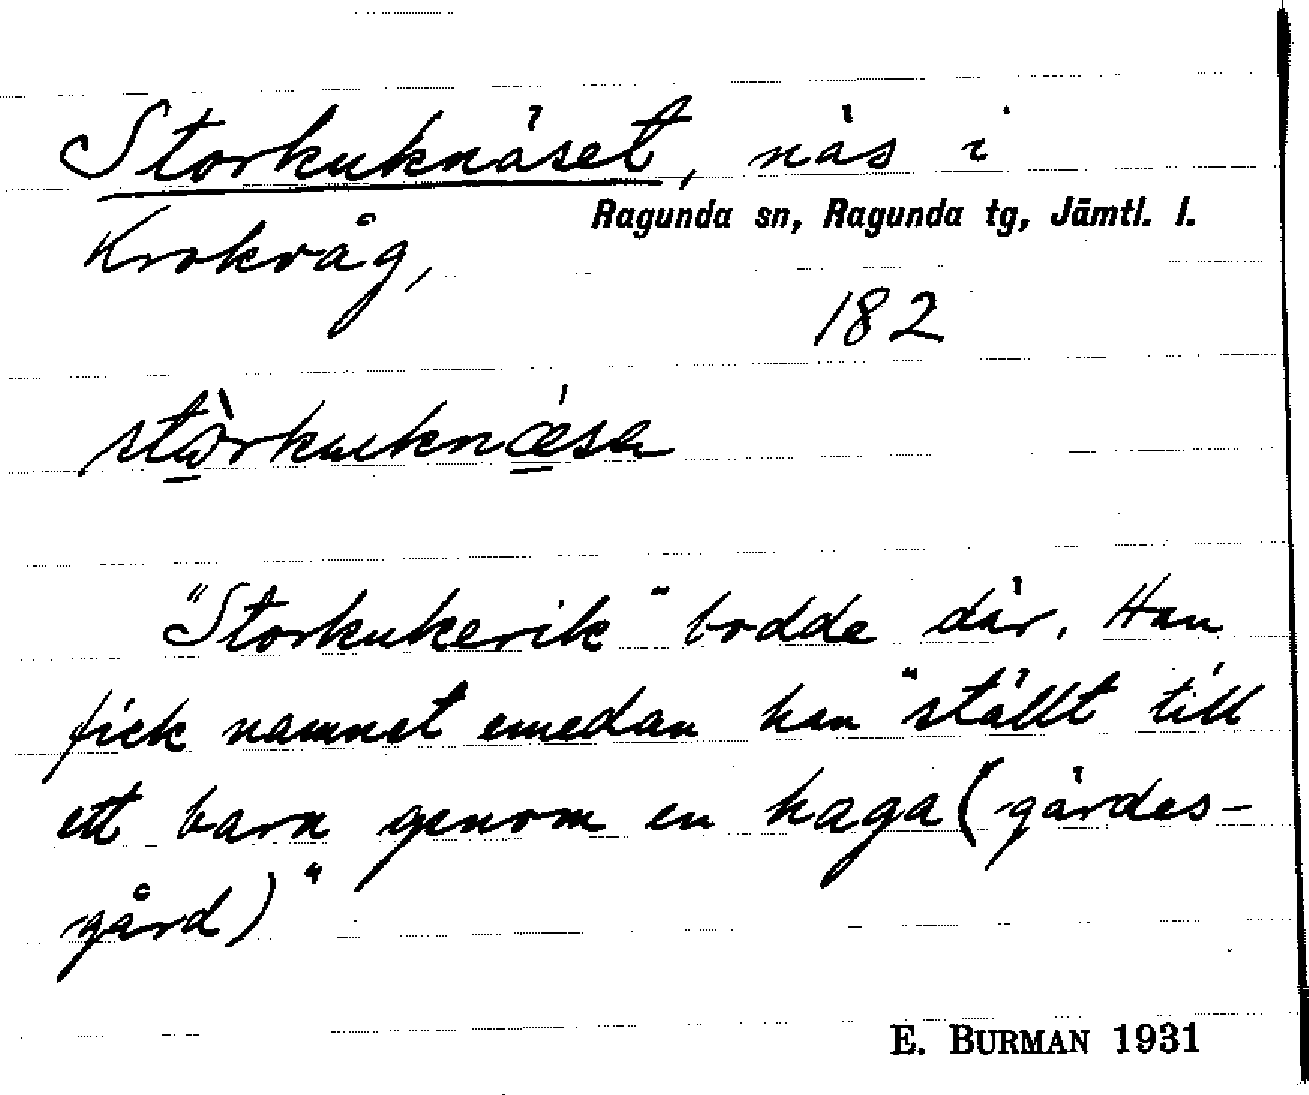 Storkuknäset, näs i
Ragunda sn, Ragunda tg, Jämtl. l.
Krokvåg,
182
stòrkuknæsa
"Storkukerik" bodde där. Han
fick namnet emedan han "ställt till
ett barn genom en haga (gärdes-
gård)"
E. BURMAN 1931